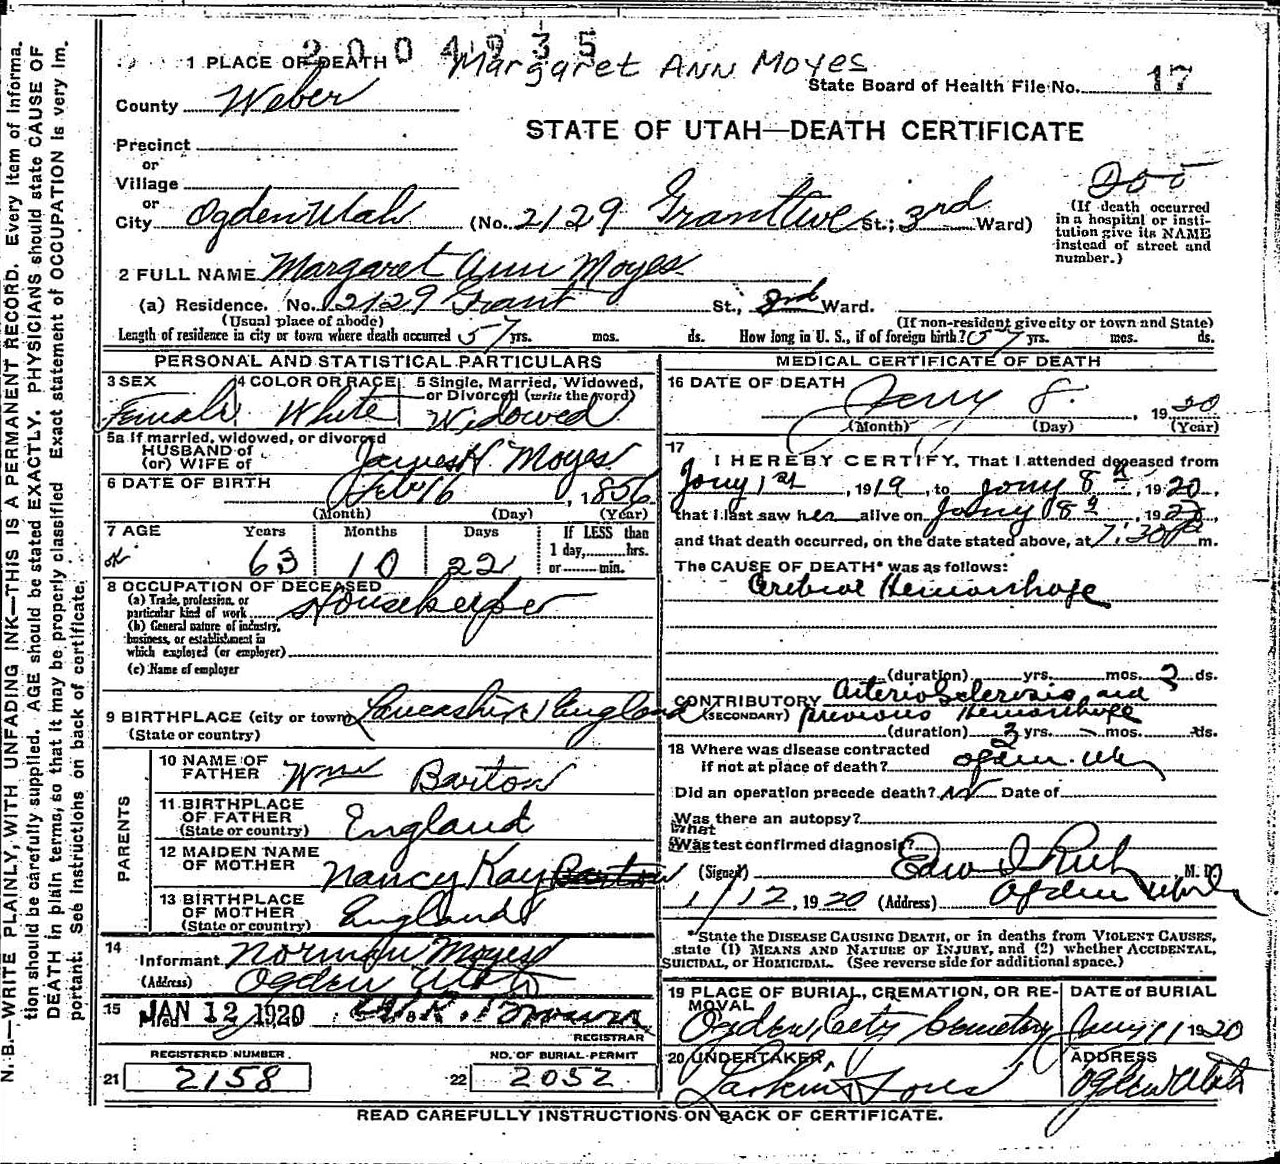 2004935
1 PLACE OF DEATH Margaret Ann Moyes
State Board of Health File No. 17
County Weber
STATE OF UTAH—DEATH CERTIFICATE
Precinct
or
Village
or
City Ogden Utah (No. 2129 Grant Ave St.; 3rd Ward)
(If death occurred in a hospital or institution give its NAME instead of street and number.)
2 FULL NAME Margaret Ann Moyes
(a) Residence. No. 2129 Grant St., 3rd Ward.
(Usual place of abode) (If non-resident give city or town and State)
Length of residence in city or town where death occurred 57 yrs. mos. ds. How long in U. S., if of foreign birth? 57 yrs. mos. ds.
PERSONAL AND STATISTICAL PARTICULARS
3 SEX 4 COLOR OR RACE 5 Single, Married, Widowed, or Divorced (write the word)
Female White Widowed
5a If married, widowed, or divorced
HUSBAND of
(or) WIFE of James H Moyes
6 DATE OF BIRTH Feb 16, 1856
(Month) (Day) (Year)
7 AGE Years Months Days If LESS than
1 day, hrs.
or min.
63 10 22
8 OCCUPATION OF DECEASED
(a) Trade, profession, or particular kind of work Housekeeper
(b) General nature of industry, business, or establishment in which employed (or employer)
(c) Name of employer
9 BIRTHPLACE (city or town) Lancashire England
(State or country)
PARENTS
10 NAME OF FATHER Wm Barton
11 BIRTHPLACE OF FATHER England
(State or country)
12 MAIDEN NAME OF MOTHER Nancy Kay Barton
13 BIRTHPLACE OF MOTHER England
(State or country)
14 Informant Norman Moyes
(Address) Ogden Utah
15 Filed JAN 12 1920 Brown
REGISTRAR
REGISTERED NUMBER NO. OF BURIAL-PERMIT
21 2158 22 2052
MEDICAL CERTIFICATE OF DEATH
16 DATE OF DEATH Jany 8, 1920
(Month) (Day) (Year)
17 I HEREBY CERTIFY, That I attended deceased from
Jany 1st, 1919, to Jany 8, 1920,
that I last saw her alive on Jany 8, 19
and that death occurred, on the date stated above, at 7:30 m.
The CAUSE OF DEATH* was as follows:
Cerebral Hemorrhage
(duration) yrs. mos. 2 ds.
CONTRIBUTORY Arterio Sclerosis and
(SECONDARY) previous Hemorrhage
(duration) 3 yrs. mos. ds.
18 Where was disease contracted
if not at place of death? Ogden. Utah
Did an operation precede death? no Date of
Was there an autopsy?
What
Was test confirmed diagnosis?
(Signed) Edw I Rich, M. D.
1/12, 1920 (Address) Ogden Utah
*State the DISEASE CAUSING DEATH, or in deaths from VIOLENT CAUSES, state (1) MEANS AND NATURE OF INJURY, and (2) whether ACCIDENTAL, SUICIDAL, or HOMICIDAL. (See reverse side for additional space.)
19 PLACE OF BURIAL, CREMATION, OR REMOVAL DATE of BURIAL
Ogden City Cemetery Jany 11 1920
20 UNDERTAKER ADDRESS
Larkin & Sons Ogden Utah
READ CAREFULLY INSTRUCTIONS ON BACK OF CERTIFICATE.
N. B.—WRITE PLAINLY, WITH UNFADING INK—THIS IS A PERMANENT RECORD. Every item of information should be carefully supplied. AGE should be stated EXACTLY. PHYSICIANS should state CAUSE OF DEATH in plain terms, so that it may be properly classified. Exact statement of OCCUPATION is very important. See instructions on back of certificate.